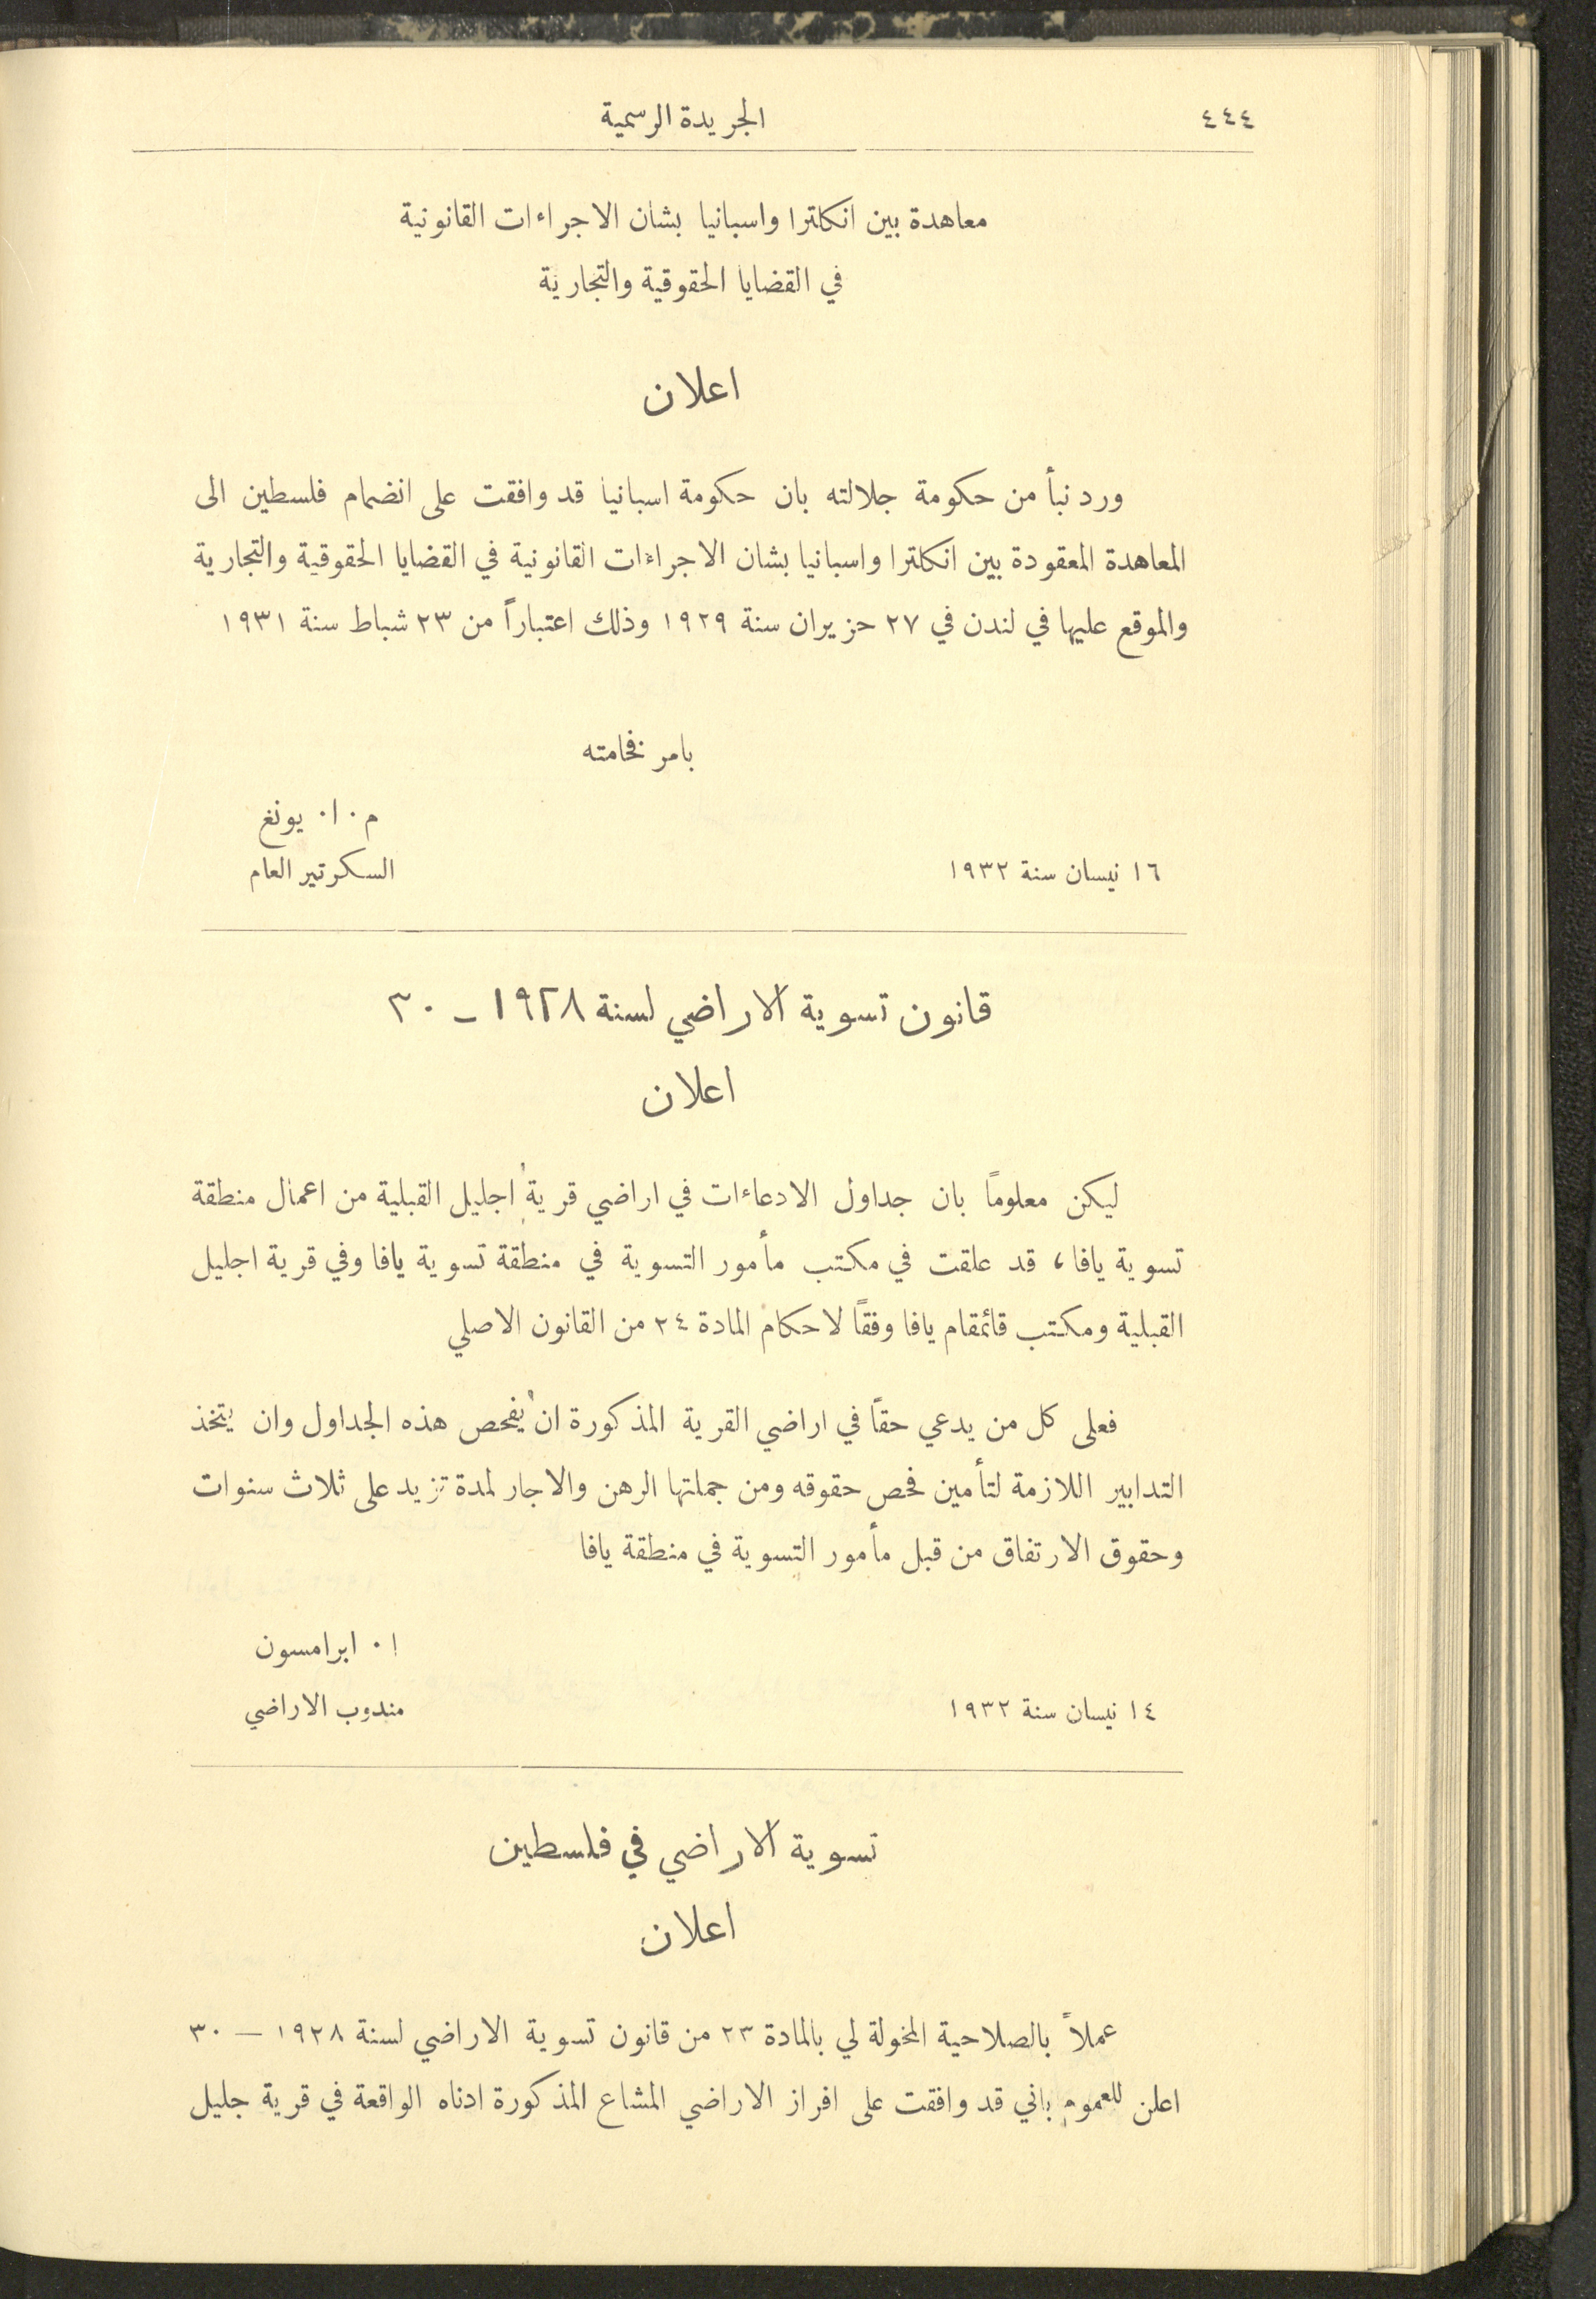 ٤٤٤
الجريدة الرسمية
معاهدة بين انكلترا واسبانيا بشان الاجراءات القانونية
في القضايا الحقوقية والتجارية
اعلان
ورد نبأ من حكومة جلالته بان حكومة اسبانيا قد وافقت على انضمام فلسطين الى
المعاهدة المعقودة بين انكلترا واسبانيا بشان الاجراءات القانونية في القضايا الحقوقية والتجارية
والموقع عليها في لندن في ٢٧ حزيران سنة ١٩٢٩ وذلك اعتباراً من ٢٣ شباط سنة ١٩٣١
بامر فخامته
م٠ ا٠ يونغ
السكرتير العام
١٦ نيسان سنة ١٩٣٢
قانون تسوية الاراضي لسنة ١٩٢٨ – ٣٠
اعلان
ليكن معلوماً بان جداول الادعاءات في اراضي قرية اجليل القبلية من اعمال منطقة
تسوية يافا، قد علقت في مكتب مأمور التسوية في منطقة تسوية يافا وفي قرية اجليل
القبلية ومكتب قائمقام يافا وفقاً لاحكام المادة ٢٤ من القانون الاصلي
فعلى كل من يدعي حقاً في اراضي القرية المذكورة ان يفحص هذه الجداول وان يتخذ
التدابير اللازمة لتأمين فحص حقوقه ومن جملتها الرهن والاجار لمدة تزيد على ثلاث سنوات
وحقوق الارتفاق من قبل مأمور التسوية في منطقة يافا
ا٠ ابرامسون
مندوب الاراضي
١٤ نيسان سنة ١٩٣٢
تسوية الاراضي في فلسطين
اعلان
عملاً بالصلاحية المخولة لي بالمادة ٢٣ من قانون تسوية الاراضي لسنة ١٩٢٨ — ٣٠
اعلن للعموم باني قد وافقت على افراز الاراضي المشاع المذكورة ادناه الواقعة في قرية جليل